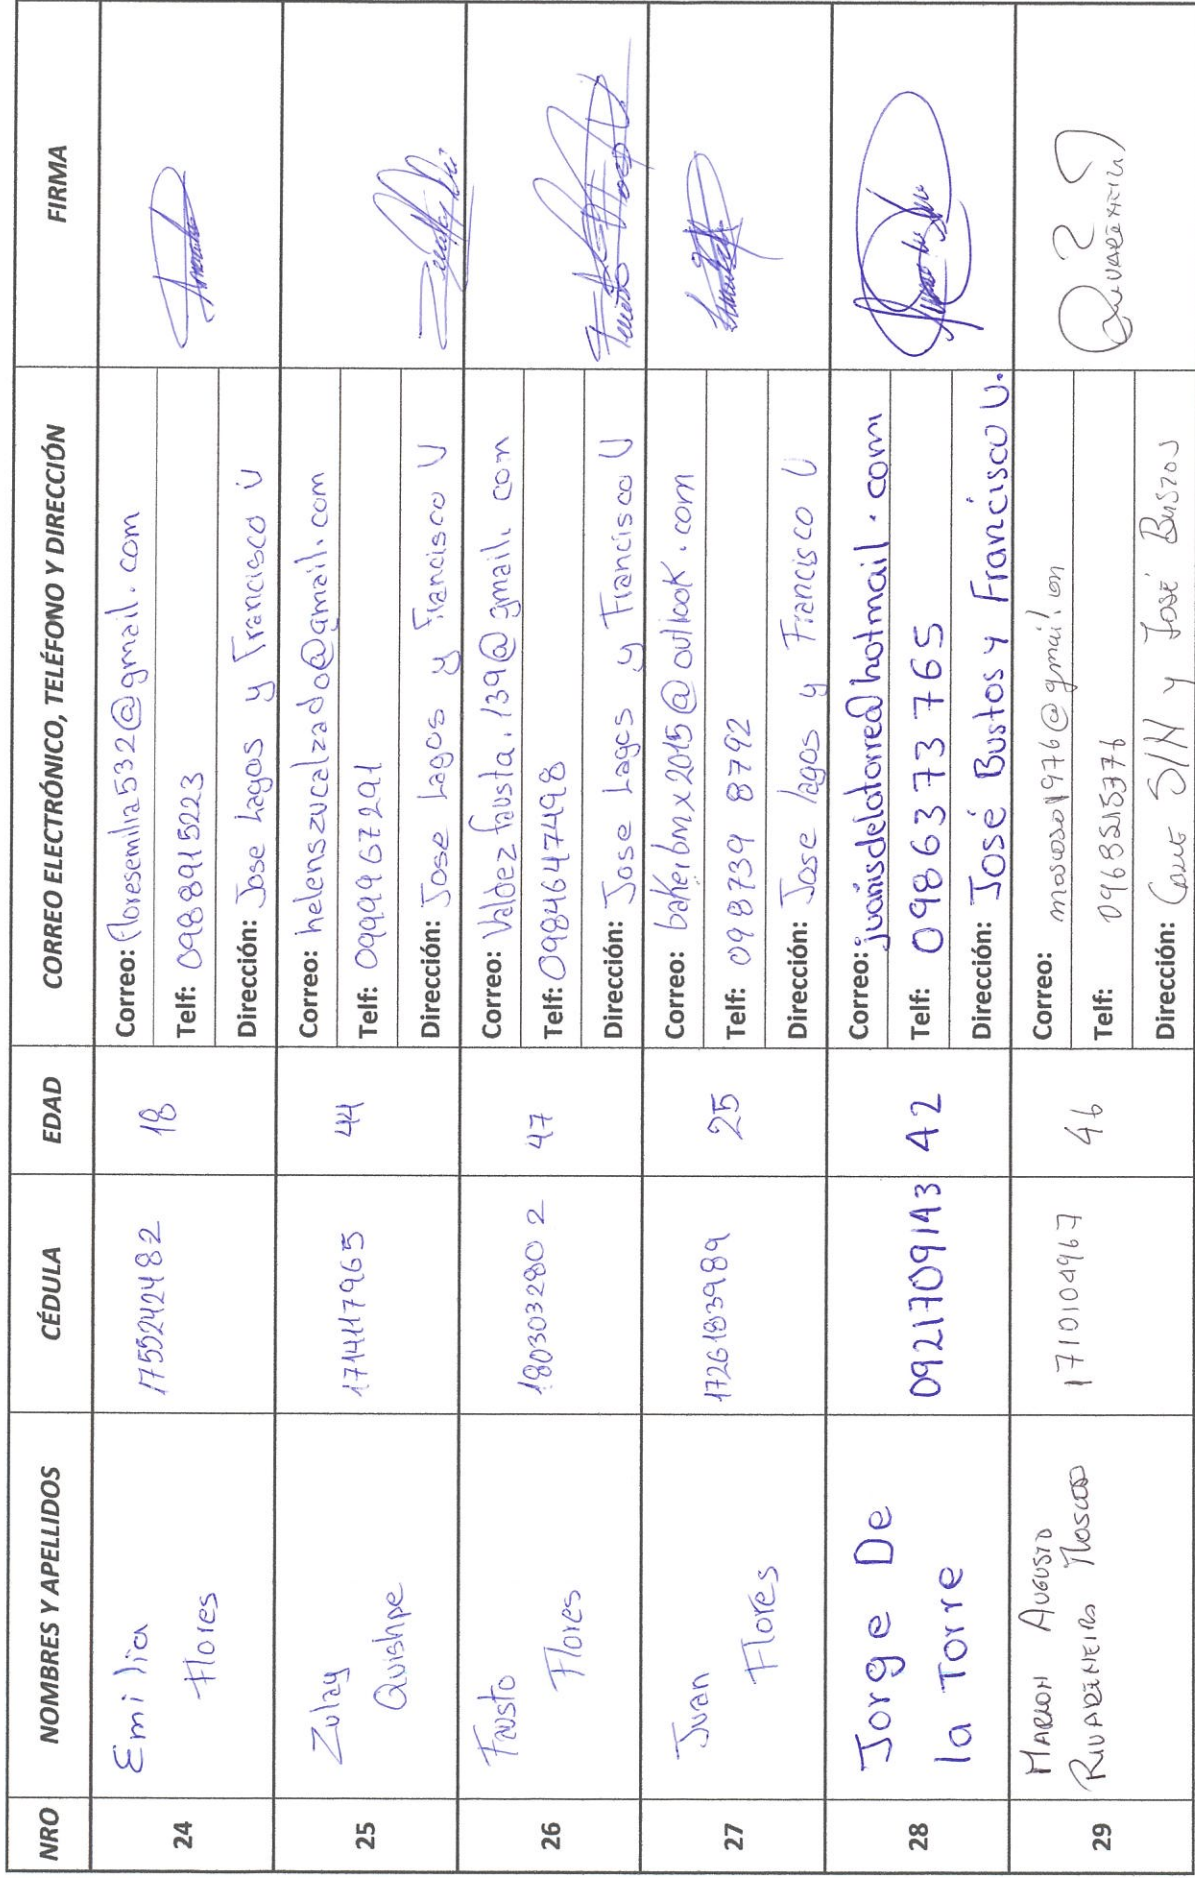 NRO NOMBRES Y APELLIDOS CÉDULA EDAD CORREO ELECTRÓNICO, TELÉFONO Y DIRECCIÓN FIRMA
24
Emilia
Flores
1755242482
18
Correo: floresemilia532@gmail.com
Telf: 0988915223
Dirección: Jose Lagos y Francisco U
25
Zulay
Quishpe
1714117965
44
Correo: helenszucalzado@gmail.com
Telf: 0999967291
Dirección: Jose Lagos y Francisco U
26
Fausto
Flores
1803032802
47
Correo: Valdezfausta.139@gmail.com
Telf: 0984647498
Dirección: Jose Lagos y Francisco U
27
Juan
Flores
1726183989
25
Correo: bakerbmx2015@outlook.com
Telf: 098739 8792
Dirección: Jose lagos y Francisco U
28
Jorge De
la Torre
0921709143
42
Correo: juanisdelatorre@hotmail.com
Telf: 0986373765
Dirección: José Bustos y Francisco U.
29
MARLON AUGUSTO
RIVADENEIRA MOSCOSO
1710104967
46
Correo: moscoso1976@gmail.com
Telf:
Dirección: CALLE S/N y JOSÉ BUSTOS